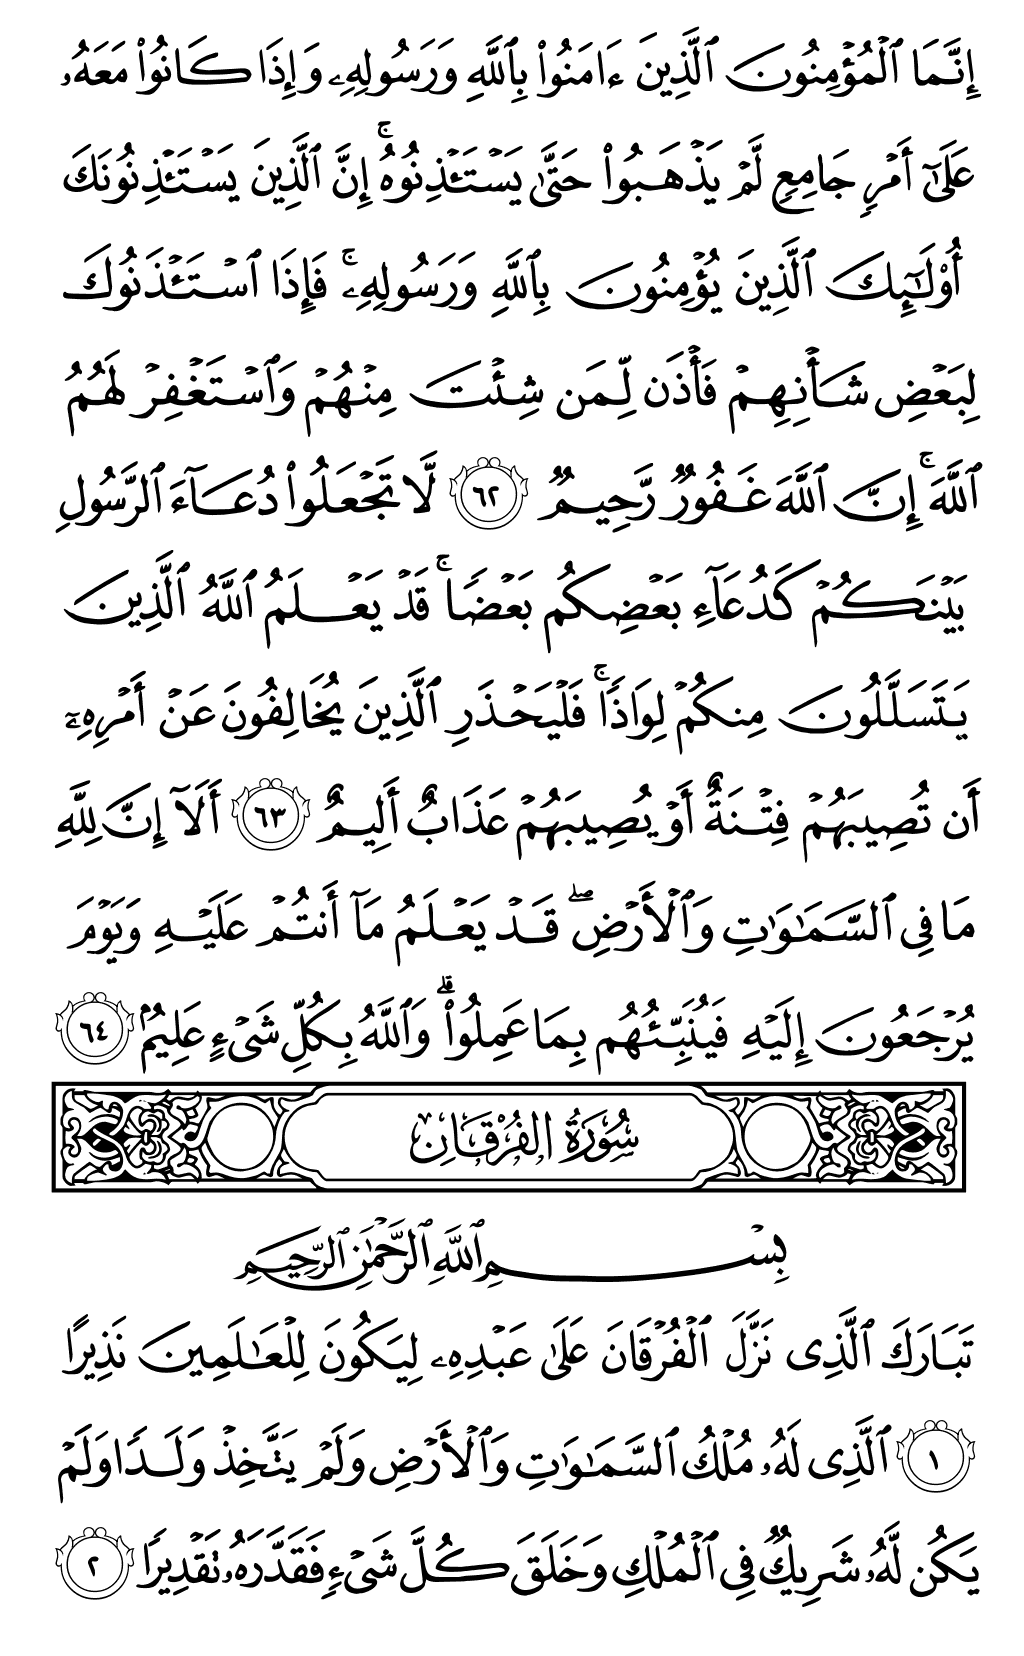 إِنَّمَا ٱلْمُؤْمِنُونَ ٱلَّذِينَ ءَامَنُوا۟ بِٱللَّهِ وَرَسُولِهِۦ وَإِذَا كَانُوا۟ مَعَهُۥ
عَلَىٰٓ أَمْرٍ جَامِعٍ لَّمْ يَذْهَبُوا۟ حَتَّىٰ يَسْتَـْٔذِنُوهُ ۚ إِنَّ ٱلَّذِينَ يَسْتَـْٔذِنُونَكَ
أُو۟لَـٰٓئِكَ ٱلَّذِينَ يُؤْمِنُونَ بِٱللَّهِ وَرَسُولِهِۦ ۚ فَإِذَا ٱسْتَـْٔذَنُوكَ
لِبَعْضِ شَأْنِهِمْ فَأْذَن لِّمَن شِئْتَ مِنْهُمْ وَٱسْتَغْفِرْ لَهُمُ
ٱللَّهَ ۚ إِنَّ ٱللَّهَ غَفُورٌ رَّحِيمٌ ٦٢ لَّا تَجْعَلُوا۟ دُعَآءَ ٱلرَّسُولِ
بَيْنَكُمْ كَدُعَآءِ بَعْضِكُم بَعْضًا ۚ قَدْ يَعْلَمُ ٱللَّهُ ٱلَّذِينَ
يَتَسَلَّلُونَ مِنكُمْ لِوَاذًا ۚ فَلْيَحْذَرِ ٱلَّذِينَ يُخَالِفُونَ عَنْ أَمْرِهِۦٓ
أَن تُصِيبَهُمْ فِتْنَةٌ أَوْ يُصِيبَهُمْ عَذَابٌ أَلِيمٌ ٦٣ أَلَآ إِنَّ لِلَّهِ
مَا فِى ٱلسَّمَـٰوَٰتِ وَٱلْأَرْضِ ۖ قَدْ يَعْلَمُ مَآ أَنتُمْ عَلَيْهِ وَيَوْمَ
يُرْجَعُونَ إِلَيْهِ فَيُنَبِّئُهُم بِمَا عَمِلُوا۟ ۗ وَٱللَّهُ بِكُلِّ شَىْءٍ عَلِيمٌۢ ٦٤
سُورَةُ الفُرْقَانِ
بِسْمِ ٱللَّهِ ٱلرَّحْمَـٰنِ ٱلرَّحِيمِ
تَبَارَكَ ٱلَّذِى نَزَّلَ ٱلْفُرْقَانَ عَلَىٰ عَبْدِهِۦ لِيَكُونَ لِلْعَـٰلَمِينَ نَذِيرًا
١ ٱلَّذِى لَهُۥ مُلْكُ ٱلسَّمَـٰوَٰتِ وَٱلْأَرْضِ وَلَمْ يَتَّخِذْ وَلَدًا وَلَمْ
يَكُن لَّهُۥ شَرِيكٌ فِى ٱلْمُلْكِ وَخَلَقَ كُلَّ شَىْءٍ فَقَدَّرَهُۥ تَقْدِيرًا ٢